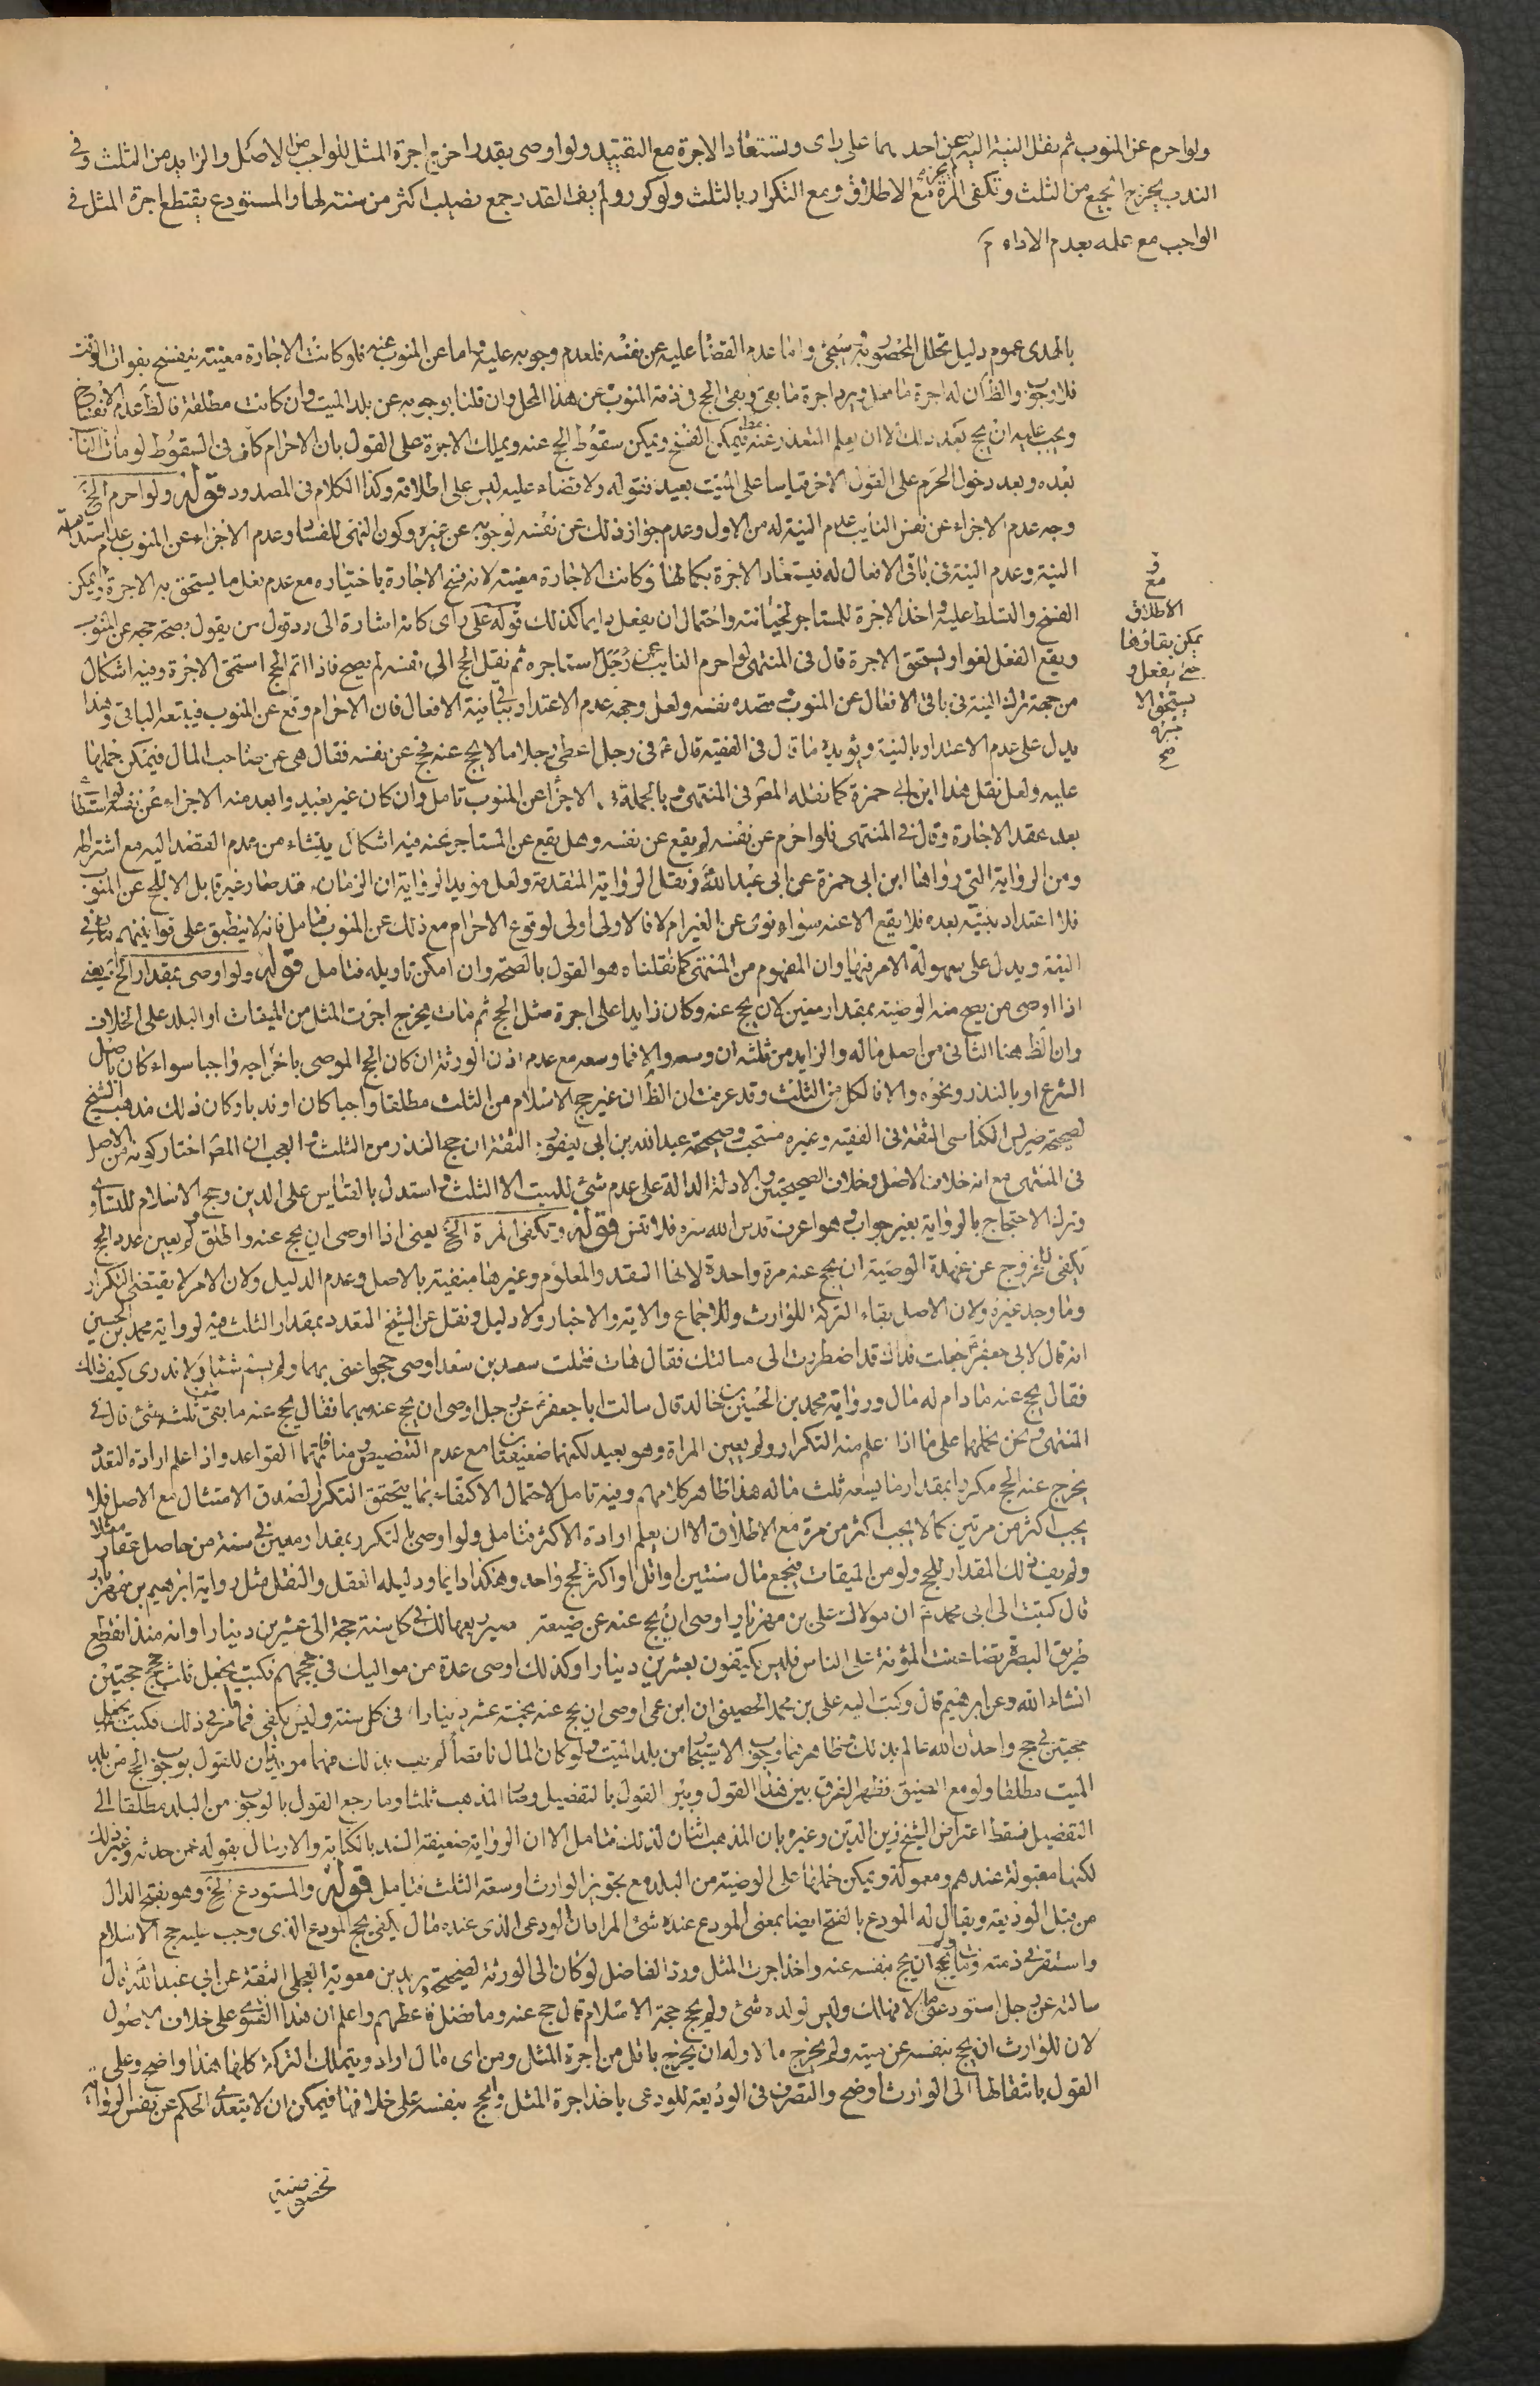 ولو احرم عن المنوب ثم نقل النية اليه عن احدهما على راى وتستعاد الاجرة مع التقييد ولو اوصى بقدر اخرج اجرة المثل للواجب من الاصل والزايد من الثلث وفى
الندب يخرج الجميع من الثلث وتكفى المرة مع الاطلاق ومع التكرار بالثلث ولو كرر ولم يف القدر جمع نصيب اكثر من سنة لها والمستودع يقتطع اجرة المثل فى
الواجب مع علمه بعدم الاداء
بالهدى عموم دليل تحلل المحصور به سيجئ واما عدم القضاء عليه عن نفسه فلعدم وجوبه عليه واما عن المنوب عنه فلو كانت الاجارة معينة ينفسخ بفوات الوقت
فلا وجوب والظ ان له اجرة ما عمل ويرد اجرة ما بقى وبقى الحج فى ذمة المنوب عن هذا المحل وان قلنا بوجوبه عن بلد الميت وان كانت مطلقة فالظ عدم الانفساخ
ويجب عليه ان يحج بعد ذلك الا ان يعلم التعذر عنه فيمكن الفسخ ويمكن سقوط الحج عنه ويملك الاجرة على القول بان الاحرام كاف فى السقوط لو مات النايب
بعده وبعد دخول الحرم على القول الاخر قياسا على الميت بعيد فقوله ولا قضاء عليه ليس على اطلاقه وكذا الكلام فى المصدود قوله ولو احرم الخ
وجه عدم الاجزاء عن نفس النايب عدم النية له من الاول وعدم جواز ذلك عن نفسه لوجوبه عن غيره وكون النهى للفساد وعدم الاجزاء عن المنوب عدم استدامة
النية وعدم النية فى باقى الافعال له فيستعاد الاجرة بكمالها لو كانت الاجارة معينة لانه فسخ الاجارة باختياره مع عدم فعل ما يستحق به الاجرة ويمكن
الفسخ والتسلط عليه واخذ الاجرة للمستاجر لخيانته واحتمال ان يفعل دايما كذلك قوله على راى كانه اشارة الى رد قول من يقول بصحة حجه عن المنوب
ويقع الفعل لغوا ويستحق الاجرة قال فى المنتهى لو احرم النايب عن رجل استاجره ثم نقل الحج الى نفسه لم يصح فاذا اتم الحج استحق الاجرة وفيه اشكال
من جهة ترك النية فى باقى الافعال عن المنوب وقصده نفسه ولعل وجهه عدم الاعتداد بنية باقى الافعال فان الاحرام وقع عن المنوب فيتبعه الباقى وهذا
يدل على عدم الاعتداد بالنية ويؤيده ما قال فى الفقيه قال ع فى رجل اعطى رجلا مالا يحج عنه فحج عن نفسه فقال هى عن صاحب المال فيمكن حملها
عليه ولعل نقل هذا ابن ابى حمزة كما نقله المص فى المنتهى وبالجملة الاجزاء عن المنوب تامل وان كان غير بعيد وابعد منه الاجزاء عن نفسه
بعد عقد الاجارة وقال فى المنتهى فلو احرم عن نفسه لم يقع عن نفسه وهل يقع عن المستاجر عنه فيه اشكال ينشاء من عدم القصد اليه مع اشتراطه
ومن الرواية التى رواها ابن ابى حمزة عن ابى عبد الله ونقل الرواية المتقدمة ولعل مؤيد الرواية ان الزمان قد صار غير قابل الا للحج عن المنوب
فلا اعتداد بنيته بعده فلا يقع الا عنه سواء نوى عن الغير ام لا فالاولى اولى لوقوع الاحرام مع ذلك عن المنوب فتامل فانه لا ينطبق على قوانينهم
النية ويدل على سهولة الامر فيها وان المفهوم من المنتهى كما نقلناه هو القول بالصحة وان امكن تاويله فتامل قوله ولو اوصى بمقدار الخ يعنى
اذا اوصى من يصح منه الوصية بمقدار معين لان يحج عنه وكان زايدا على اجرة مثل الحج ثم مات يخرج اجرت المثل من الميقات او البلد على الخلاف
وان الظ هنا الثانى من اصل ماله والزايد من ثلثه ان وسعه والا فما وسعه مع عدم اذن الورثة ان كان الحج الموصى باخراجه واجبا سواء كان باصل
الشرع او بالنذر ونحوه والا فالكل من الثلث وقد عرفت ان الظ ان غير حج الاسلام من الثلث مطلقا واجبا كان او ندبا وكان ذلك مذهب الشيخ
لصحيحة ضريس الكناسى الثقة فى الفقيه وغيره وصحيحة عبد الله بن ابى يعفور الثقة ان حج النذر من الثلث والعجب ان المص اختار كونه من الاصل
فى المنتهى مع انه خلاف الاصل وخلاف الصحيحتين والادلة الدالة على عدم شئ للميت الا الثلث واستدل بالقياس على الدين وحج الاسلام للتساوى
وترك الاحتجاج بالرواية بغير جواب وهو اعرف قدس الله سره فلا تنس قوله وتكفى المرة الخ يعنى اذا اوصى ان يحج عنه واطلق ولم يعين عدد الحج
تكفى للخروج عن عهدة الوصية ان يحج عنه مرة واحدة لانها القدر المعلوم وغيرها منفية بالاصل وعدم الدليل ولان الامر لا يقتضى التكرار
وما وجد غيره ولان الاصل بقاء التركة للوارث وللاجماع والاية والاخبار ولا دليل ونقل عن الشيخ التعدد بمقدار الثلث فيه لرواية محمد بن الحسين
انه قال لابى جعفر ع جعلت فداك قد اضطررت الى مسالتك فقال هات فقلت سعد بن سعد اوصى حجوا عنى مبهما ولم يسم شيئا ولا ندرى كيف ذلك
فقال يحج عنه ما دام له مال ورواية محمد بن الحسين بن خالد قال سالت ابا جعفر ع عن رجل اوصى ان يحج عنه مبهما فقال يحج عنه ما بقى من ثلثه شئ قال فى
المنتهى ونحن نحملها على ما اذا علم منه التكرار ولم يعين المراة وهو بعيد لكنهما ضعيفتان مع عدم التنصيص ومنافاتهما القواعد واذا علم ارادة التعدد
يخرج عنه الحج مكررا بمقدار ما يسعه ثلث ماله هذا ظاهر كلامهم وفيه تامل لاحتمال الاكتفاء بما يتحقق التكرار لصدق الامتثال مع الاصل فلا
يجب اكثر من مرتين كما لا يجب اكثر من مرة مع الاطلاق الا ان يعلم ارادة الاكثر فتامل ولو اوصى بالتكرر بمقدار معين فى سنة من حاصل عقار مثلا
ولم يف ذلك المقدار للحج ولو من الميقات فيجمع مال سنتين او اقل او اكثر لحج واحد وهكذا دايما ودليله العقل والنقل مثل رواية ابرهيم بن مهزيار
قال كتبت الى ابى محمد ع ان مولاك على بن مهزيار اوصى ان يحج عنه عن ضيعة صير ربعها لك فى كل سنة حجة الى عشرين دينارا وانه منذ انقطع
طريق البصرة تضاعفت المؤنة على الناس فليس يكتفون بعشرين دينارا وكذلك اوصى عدة من مواليك فى حججهم فكتب يجعل ثلث حجج حجتين
انشاء الله وعن ابرهيم قال وكتب اليه على بن محمد الحصينى ان ابن عمى اوصى ان يحج عنه بخمسة عشر دينارا فى كل سنة وليس يكفى فما تامر فى ذلك فكتب يجعل
حجتين فى حج واحد ان الله عالم بذلك وظاهرهما وجوب الاستيجار من بلد الميت ولو كان المال ناقصا لم يجب بذلك فهما مؤيدان للقول بوجوب الحج من بلد
الميت مطلقا ولو مع الضيق فظهر الفرق بين هذا القول وبين القول بالتفصيل وصار المذهب ثلثا وما رجع القول بالوجوب من البلد مطلقا الى
التفصيل فسقط اعتراض الشيخ زين الدين وغيره بان المذهب اثنان لذلك فتامل الا ان الرواية ضعيفة السند بالكتابة والارسال بقوله عمن حدثه وغير ذلك
لكنها مقبولة عندهم ومعمولة ويمكن حملها على الوصية من البلد مع تجويز الوارث او سعة الثلث فتامل قوله والمستودع الخ وهو بفتح الدال
من قبل الوديعة ويقال له المودع بالفتح ايضا بمعنى المودع عنده شئ المراد ان الودعى الذى عنده مال يكفى لحج المودع الذى وجب عليه حج الاسلام
واستقر فى ذمته ومات يحج ان يحج بنفسه عنه واخذ اجرت المثل ورد الفاضل لو كان الى الورثة لصحيحة بريد بن معوية العجلى الثقة عن ابى عبد الله قال
سالته عن رجل استودعنى مالا فهلك وليس لولده شئ ولم يحج حجة الاسلام قال حج عنه وما فضل فاعطهم واعلم ان هذا الفتوى على خلاف الاصول
لان للوارث ان يحج بنفسه عن ميته ولم يخرج مالا وله ان يخرج باقل من اجرة المثل ومن اى مال اراد ويتملك التركة كلها هذا واضح وعلى
القول بانتقالها الى الوارث اوضح والتصرف فى الوديعة للودعى باخذ اجرة المثل والحج بنفسه على خلافها فيمكن ان لا يتعدى الحكم عن نفس الرواية
مع
الاطلاق
يمكن بقاؤها
حتى يفعل و
يستحق الا
جره
صح